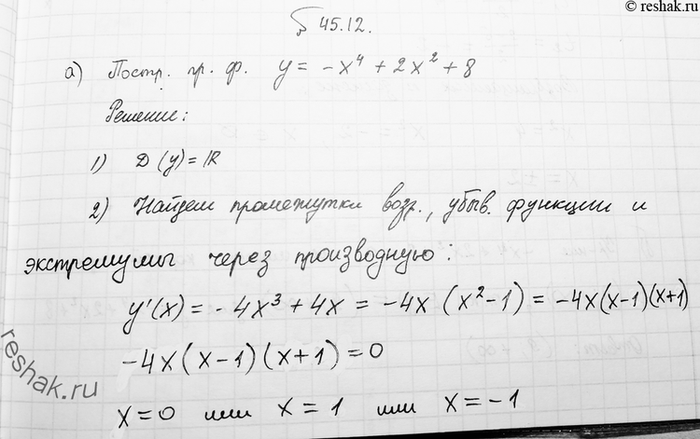 © reshak.ru
§ 45.12.
а) Постр. гр. ф. y = -x⁴ + 2x² + 8
Решение:
1) D(y) = ℝ
2) Найдем промежутки возр., убыв. функции и
экстремумы через производную:
y'(x) = -4x³ + 4x = -4x (x² - 1) = -4x(x-1)(x+1)
-4x(x-1)(x+1) = 0
x = 0 или x = 1 или x = -1
reshak.ru